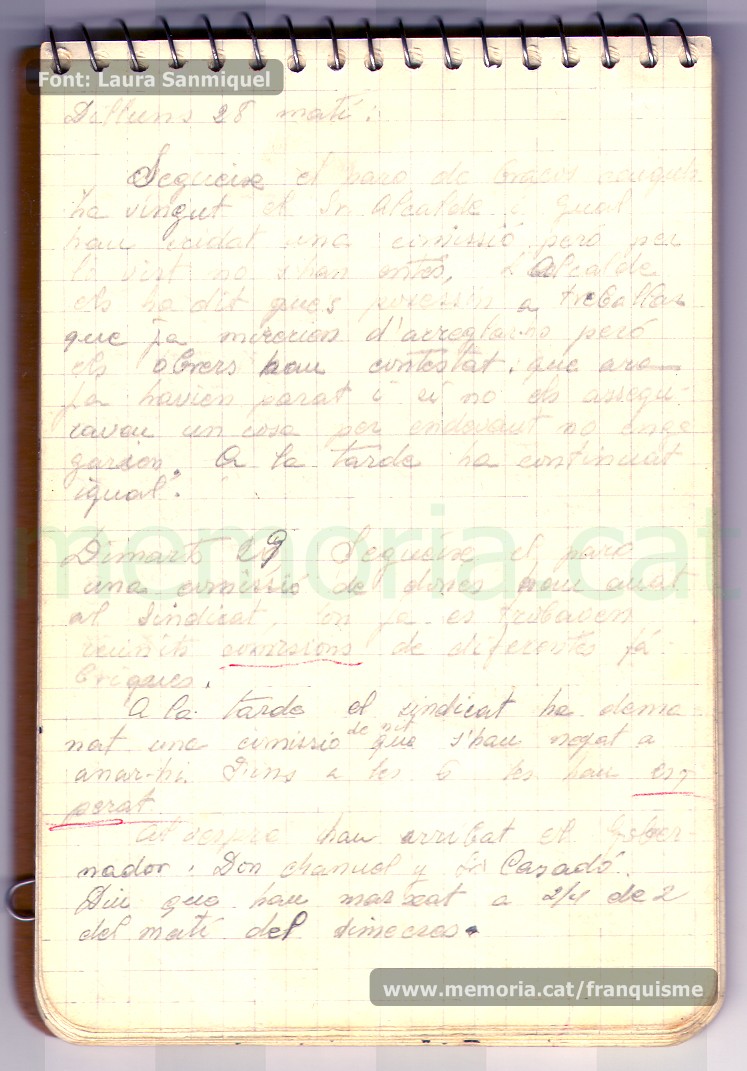 Font: Laura Sanmiquel
Dilluns 28 matí:
Segueixe el paro de braços
ha vingut el Sr. Alcalde i igual
hau cridat una comissió però per
lo vist no s'han entés, l'Alcalde
els ha dit ques posessin a treballar
que ja mirarien d'arreglarho però
els obrers hau contestat, que ara
ja havien parat i si no els assegu-
ravau un cosa per endavaut no enge
garien. A la tarde ha continuat
igual.
Dimarts 29 Segueixe el paro
una comissió de dones hau anat
al Sindicat, on ja es trobaven
reunits comisions de diferentes fá-
briques.
A la tarde el sindicat ha dema
nat una comissio de nit que s'hau negat a
anar-hi. Fins a les 6 les hau esp
perat.
Al vespre hau arribat el Gober-
nador, Don Manuel y Casadó.
Diu que hau marxat a 2/4 de 2
del matí del dimecras.
memoria.cat
www.memoria.cat/franquisme